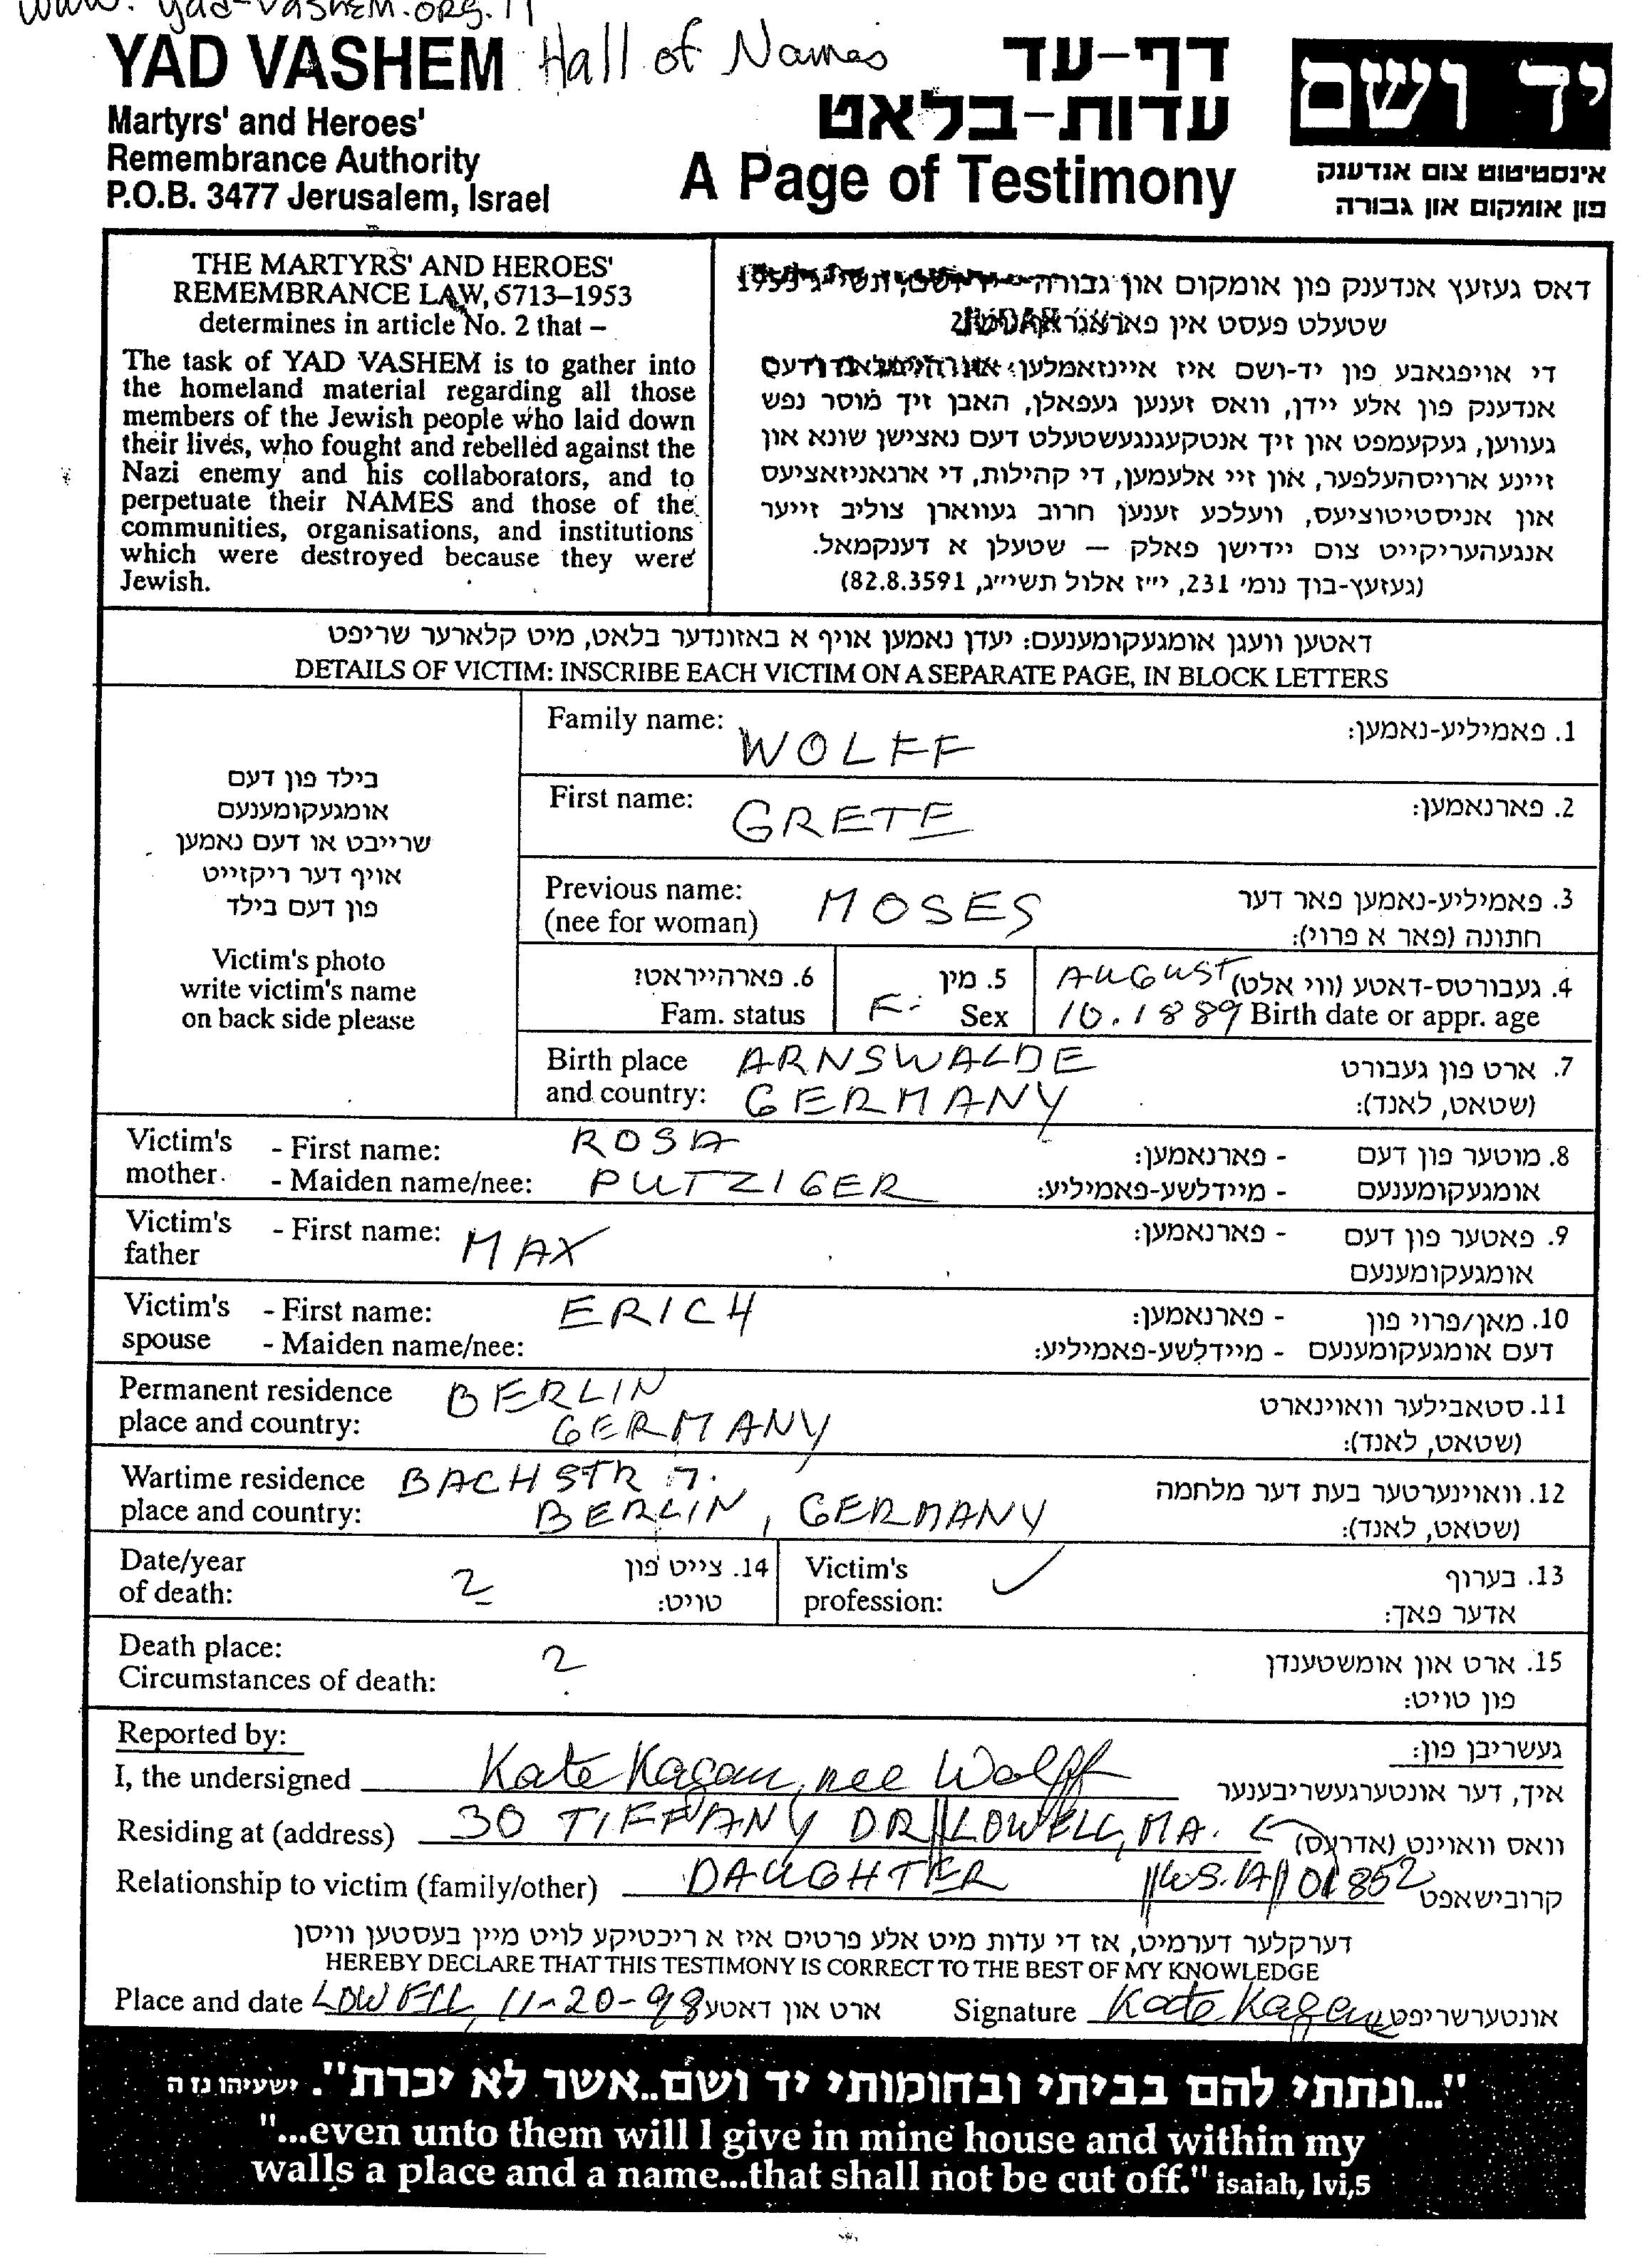 www.yad-vashem.org.il
YAD VASHEM Hall of Names
Martyrs' and Heroes'
Remembrance Authority
P.O.B. 3477 Jerusalem, Israel
דף-עד
עדות-בלאט
A Page of Testimony
יד ושם
אינסטיטוט צום אנדענק
פון אומקום און גבורה
THE MARTYRS' AND HEROES'
REMEMBRANCE LAW, 5713–1953
determines in article No. 2 that –
The task of YAD VASHEM is to gather into
the homeland material regarding all those
members of the Jewish people who laid down
their lives, who fought and rebelled against the
Nazi enemy and his collaborators, and to
perpetuate their NAMES and those of the
communities, organisations, and institutions
which were destroyed because they were
Jewish.
דאס געזעץ אנדענק פון אומקום און גבורה
שטעלט פעסט אין פאראגראף
די אויפגאבע פון יד-ושם איז איינזאמלען
אנדענק פון אלע יידן, וואס זענען געפאלן, האבן זיך מוסר נפש
געווען, געקעמפט און זיך אנטקעגנגעשטעלט דעם נאצישן שונא און
זיינע ארויסהעלפער, און זיי אלעמען, די קהילות, די ארגאניזאציעס
און אניסטיטוציעס, וועלכע זענען חרוב געווארן צוליב זייער
אנגעהעריקייט צום יידישן פאלק – שטעלן א דענקמאל.
(געזעץ-בוך נומ' 231, י״ז אלול תשי״ג, 82.8.3591)
דאטען וועגן אומגעקומענעם: יעדן נאמען אויף א באזונדער בלאט, מיט קלארער שריפט
DETAILS OF VICTIM: INSCRIBE EACH VICTIM ON A SEPARATE PAGE, IN BLOCK LETTERS
בילד פון דעם
אומגעקומענעם
שרייבט או דעם נאמען
אויף דער ריקזייט
פון דעם בילד
Victim's photo
write victim's name
on back side please
Family name: WOLFF 1. פאמיליע-נאמען:
First name: GRETE 2. פארנאמען:
Previous name: MOSES 3. פאמיליע-נאמען פאר דער
(nee for woman) חתונה (פאר א פרוי):
6. פארהייראט?
Fam. status
5. מין
F. Sex
AUGUST 4. געבורטס-דאטע (ווי אלט)
10.1889 Birth date or appr. age
Birth place ARNSWALDE 7. ארט פון געבורט
and country: GERMANY (שטאט, לאנד):
Victim's - First name: ROSA - פארנאמען: 8. מוטער פון דעם
mother - Maiden name/nee: PUTZIGER - מיידלשע-פאמיליע: אומגעקומענעם
Victim's - First name: MAX - פארנאמען: 9. פאטער פון דעם
father אומגעקומענעם
Victim's - First name: ERICH - פארנאמען: 10. מאן/פרוי פון
spouse - Maiden name/nee: - מיידלשע-פאמיליע: דעם אומגעקומענעם
Permanent residence BERLIN 11. סטאבילער וואוינארט
place and country: GERMANY (שטאט, לאנד):
Wartime residence BACHSTR 7. 12. וואוינערטער בעת דער מלחמה
place and country: BERLIN, GERMANY (שטאט, לאנד):
Date/year ? 14. צייט פון
of death: טויט:
Victim's 13. בערוף
profession: אדער פאך:
Death place: ? 15. ארט און אומשטענדן
Circumstances of death: פון טויט:
Reported by: געשריבן פון:
I, the undersigned Kate Kagan, nee Wolff איך, דער אונטערגעשריבענער
Residing at (address) 30 TIFFANY DR LOWELL, MA. וואס וואוינט (אדרעס)
Relationship to victim (family/other) DAUGHTER U.S.A 01852 קרובישאפט
דערקלער דערמיט, אז די עדות מיט אלע פרטים איז א ריכטיקע לויט מיין בעסטען וויסן
HEREBY DECLARE THAT THIS TESTIMONY IS CORRECT TO THE BEST OF MY KNOWLEDGE
Place and date LOWELL, 11-20-98 ארט און דאטע Signature Kate Kagan אונטערשריפט
"...ונתתי להם בביתי ובחומותי יד ושם..אשר לא יכרת". ישעיהו נז ה
"...even unto them will I give in mine house and within my
walls a place and a name...that shall not be cut off." isaiah, lvi,5